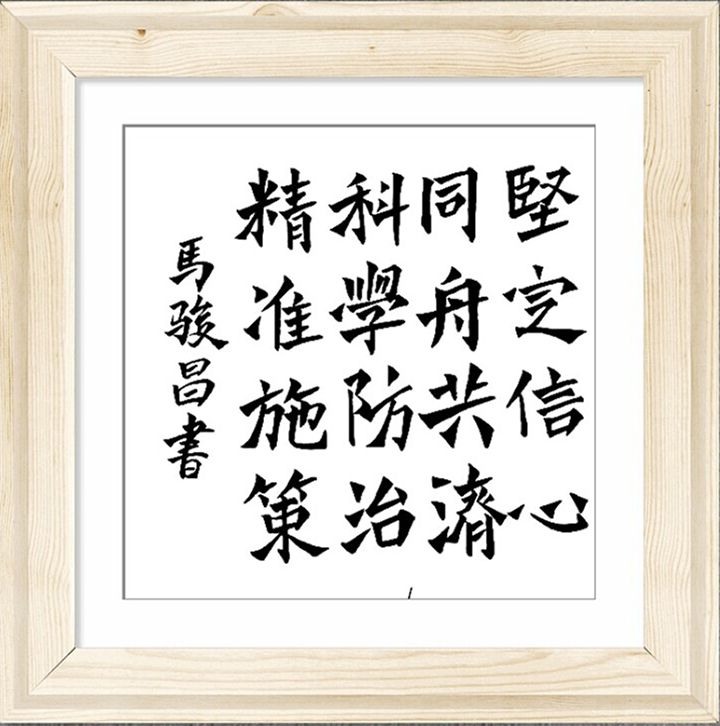 堅定信心
同舟共濟
科學防治
精准施策
馬骏昌書